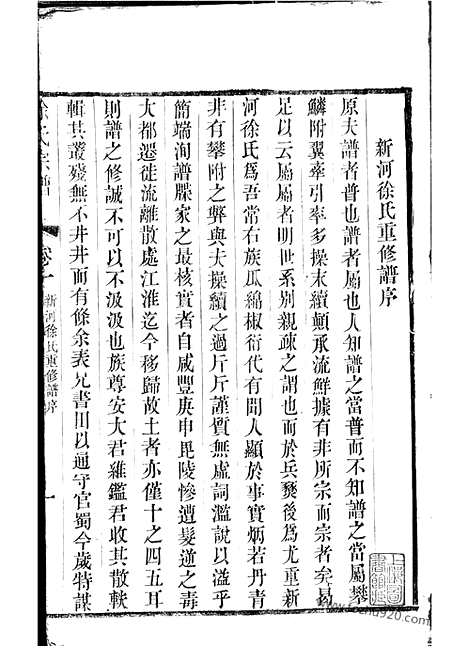 新河徐氏重修譜序
原夫譜者普也譜者屬也人知譜之當普而不知譜之當屬攀
鱗附翼牽引率多操末續顛承流鮮據有非所宗而宗者矣曷
足以云屬屬者明世系別親疎之謂也而於兵燹後爲尤重新
河徐氏爲吾常右族瓜綿椒衍代有聞人顯於事實炳若丹青
非有攀附之弊與夫操續之過斤斤謹質無虛詞濫說以溢乎
簡端洵譜牒家之最核實者自咸豐庚申毘陵慘遭髮逆之毒
大都遷徙流離散處江淮迄今移歸故土者亦僅十之四五耳
則譜之修誠不可以不汲汲也族尊安大君維鑑君收其散軼
輯其叢殘無不井井而有條余表兄書田以通守官蜀今歲特謀
徐氏宗譜
卷一
新河徐氏重修譜序
一